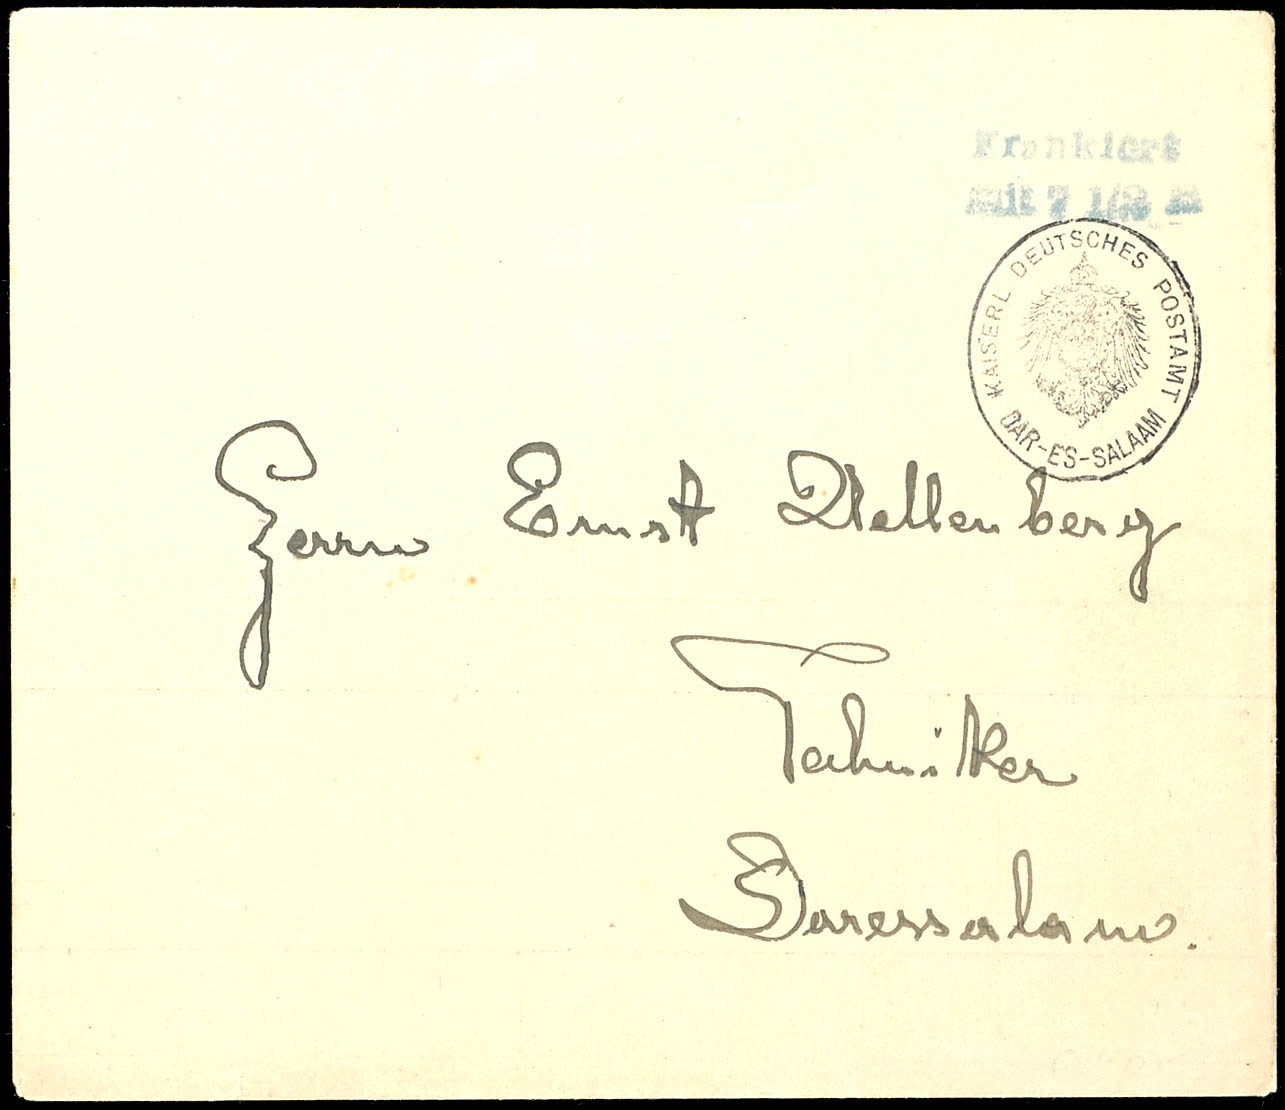 Frankiert
mit 7 1/2 H
KAISERL DEUTSCHES POSTAMT
DAR-ES-SALAAM
Herrn Ernst Wellenberg
Techniker
Daressalam.